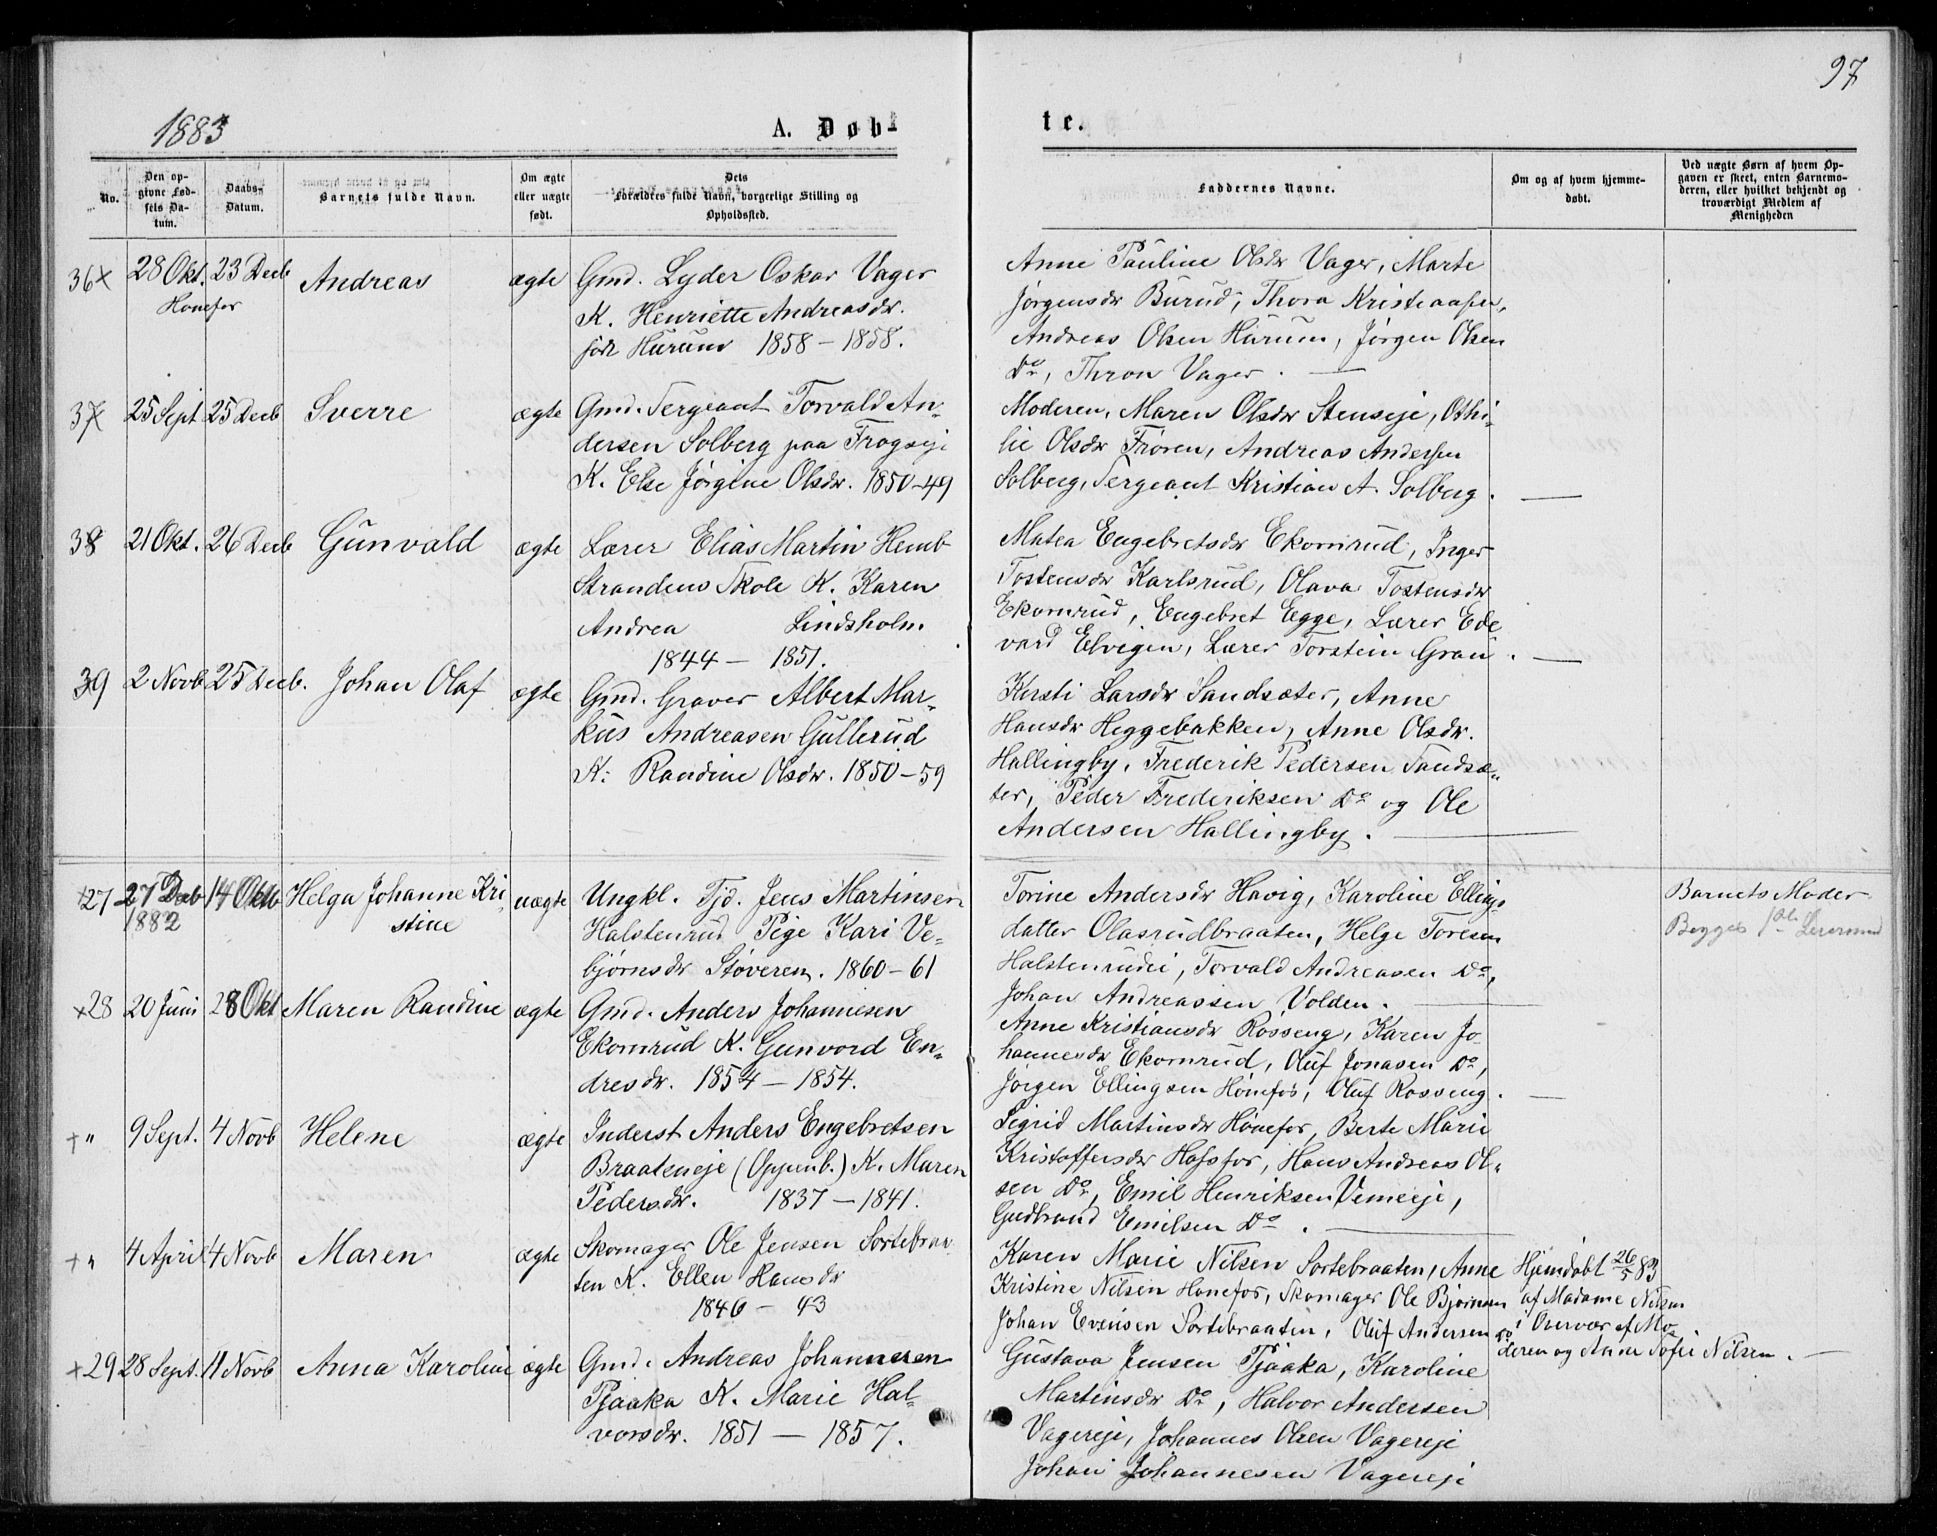 97
1883
A. Døb-
te.
No.
Den op-
givne Fød-
sels Da-
tum.
Daabs-
Datum.
Barnets fulde Navn.
Om ægte
eller uægte
født.
Dets
Forældres fulde Navn, borgerlige Stilling og
Opholdssted.
Faddernes Navne.
Om og af hvem hjemme-
døbt.
Ved uægte Børn af hvem Op-
gaven er skeet, enten Barnemo-
deren, eller hvilket bekjendt og
troværdigt Medlem af
Menigheden
36x 28 Okt. 23 Decb Andreas ægte Gmd. Lyder Oskar Vager
Hønefos
K. Henriette Andreasdr.
født Hurum 1858 – 1858.
Anne Pauline Olsdr Vager, Marte
Jørgensdr Burud, Thora Kristiansen,
Andreas Olsen Hurum, Jørgen Olsen
Do, Thron Vager.
37 25 Sept 25 Decb Sverre ægte Gmd. Sergeant Torvald An-
dersen Solberg paa Frogseje
K. Else Jørgine Olsdr. 1850-49
Moderen, Maren Olsdr Stenseje, Othi-
lie Olsdr Frøren, Andreas Andersen
Solberg, Sergeant Kristian A. Solberg.
38 21 Okt. 26 Decb Gunvald ægte Lærer Elias Martin Hemb
Strandens Skole K. Karen
Andrea Lindsholm.
1844 – 1851.
Matea Engebretsdr Ekornrud, Inger
Tostensdr Karlsrud, Olava Tostensdr
Ekornrud, Engebret Egge, Lærer Ed-
vard Elvigen, Lærer Torstein Gran.
39 2 Novb 25 Decb. Johan Olaf ægte Gmd. Graver Albert Mar-
kus Andreasen Gullerud
K: Randine Olsdr. 1850-59
Kersti Larsdr Sandsæter, Anne
Hansdr Heggebakken, Anne Olsdr.
Hallingby, Frederik Pedersen Sandsæ-
ter, Peder Frederiksen Do og Ole
Andersen Hallingby.
+27 27 Decb 14 Oktb Helga Johanne Kri- uægte Ungkl. Tjd. Jens Martinsen
1882 stine
Halstenrud Pige Kari Ve-
bjørnsdr Støveren. 1860-61
Torine Andersdr Havig, Karoline Ellings-
datter Olasrudbraaten, Helge Toresen
Halstenrudei, Torvald Andreasen Do,
Johan Andreassen Volden.
Barnets Moder
Begges
x28 20 Juni 28 Okt Maren Randine ægte Gmd. Anders Johannesen
Ekornrud K. Gunvord En-
dresdr. 1854 – 1854.
Anne Kristiansdr Rosseng, Karen Jo-
hannesdr Ekornrud, Oluf Jonasen Do,
Jørgen Ellingsen Hønefos, Oluf Rosseng.
+ " 9 Sept. 4 Novb Helene ægte Inderst Anders Engebretsen
Braateneje (Oppenb.) K. Maren
Pedersdr. 1837 – 1841.
Sigrid Martinsdr Hønefos, Berte Marie
Kristoffersdr Hofsfos, Hans Andreas Ol-
sen Do, Emil Henriksen Vemeeje,
Gudbrand Emilsen Do.
+ " 4 April 4 Novb Maren ægte Skomager Ole Jensen Sortebraa-
ten K. Ellen Hansdr
1846 – 43
Karen Marie Nilsen Sortebraaten, Anne
Kristine Nilsen Hønefos, Skomager Ole Bjørnsen
Johan Evensen Sortebraaten, Oluf Andersen Do
Hjemdøbt 26/5 83
af Madame Nilsen
i Overvær af Mo-
deren og Anne Sofie Nilsen.
+29 28 Sept. 11 Novb Anna Karoline ægte Gmd. Andreas Johannesen
Pjaaka K. Marie Hal-
vorsdr. 1851 – 1857.
Gustava Jensen Pjaaka, Karoline
Martinsdr Do, Halvor Andersen
Vagereje, Johannes Olsen Vagereje
Johan Johannesen Vagereje